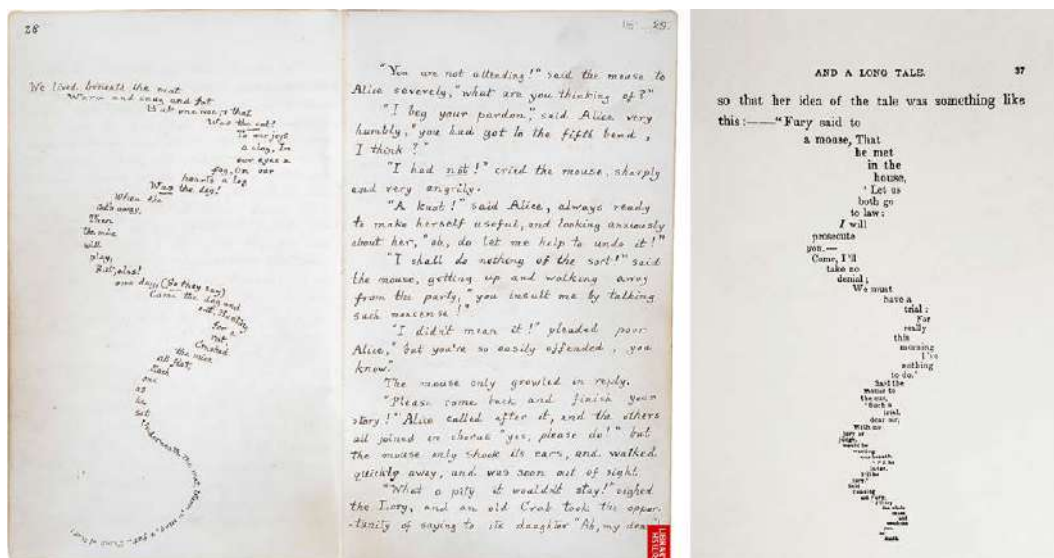 28
We lived beneath the mat
Warm and snug and fat
But one woe, & that
Was the cat!
To our joys
a clog, In
our eyes a
fog, On our
hearts a log
Was the dog!
When the
cat's away,
Then
the mice
will
play,
But, alas!
one day, (So they say)
Came the dog and
cat, Hunting
for a
rat,
Crushed
the mice
all flat,
Each
one
as
he
sat
Underneath the mat,
29
"You are not attending!" said the mouse to
Alice severely, "what are you thinking of?"
"I beg your pardon," said Alice very
humbly, "you had got to the fifth bend,
I think?"
"I had not!" cried the mouse, sharply
and very angrily.
"A knot!" said Alice, always ready
to make herself useful, and looking anxiously
about her, "oh, do let me help to undo it!"
"I shall do nothing of the sort!" said
the mouse, getting up and walking away
from the party, "you insult me by talking
such nonsense!"
"I didn't mean it!" pleaded poor
Alice, "but you're so easily offended, you
know."
The mouse only growled in reply.
"Please come back and finish your
story!" Alice called after it, and the others
all joined in chorus "yes, please do!" but
the mouse only shook its ears, and walked
quickly away, and was soon out of sight.
"What a pity it wouldn't stay!" sighed
the Lory, and an old Crab took the oppor-
-tunity of saying to its daughter "Ah, my dear!
AND A LONG TALE. 37
so that her idea of the tale was something like
this:——"Fury said to
a mouse, That
he met
in the
house,
'Let us
both go
to law:
I will
prosecute
you.—
Come, I'll
take no
denial;
We must
have a
trial:
For
really
this
morning
I've
nothing
to do.'
Said the
mouse to
the cur,
'Such a
trial,
dear sir,
With no
jury or
judge,
would be
wasting
our breath.'
'I'll be
judge,
I'll be
jury,'
Said
cunning
old Fury;